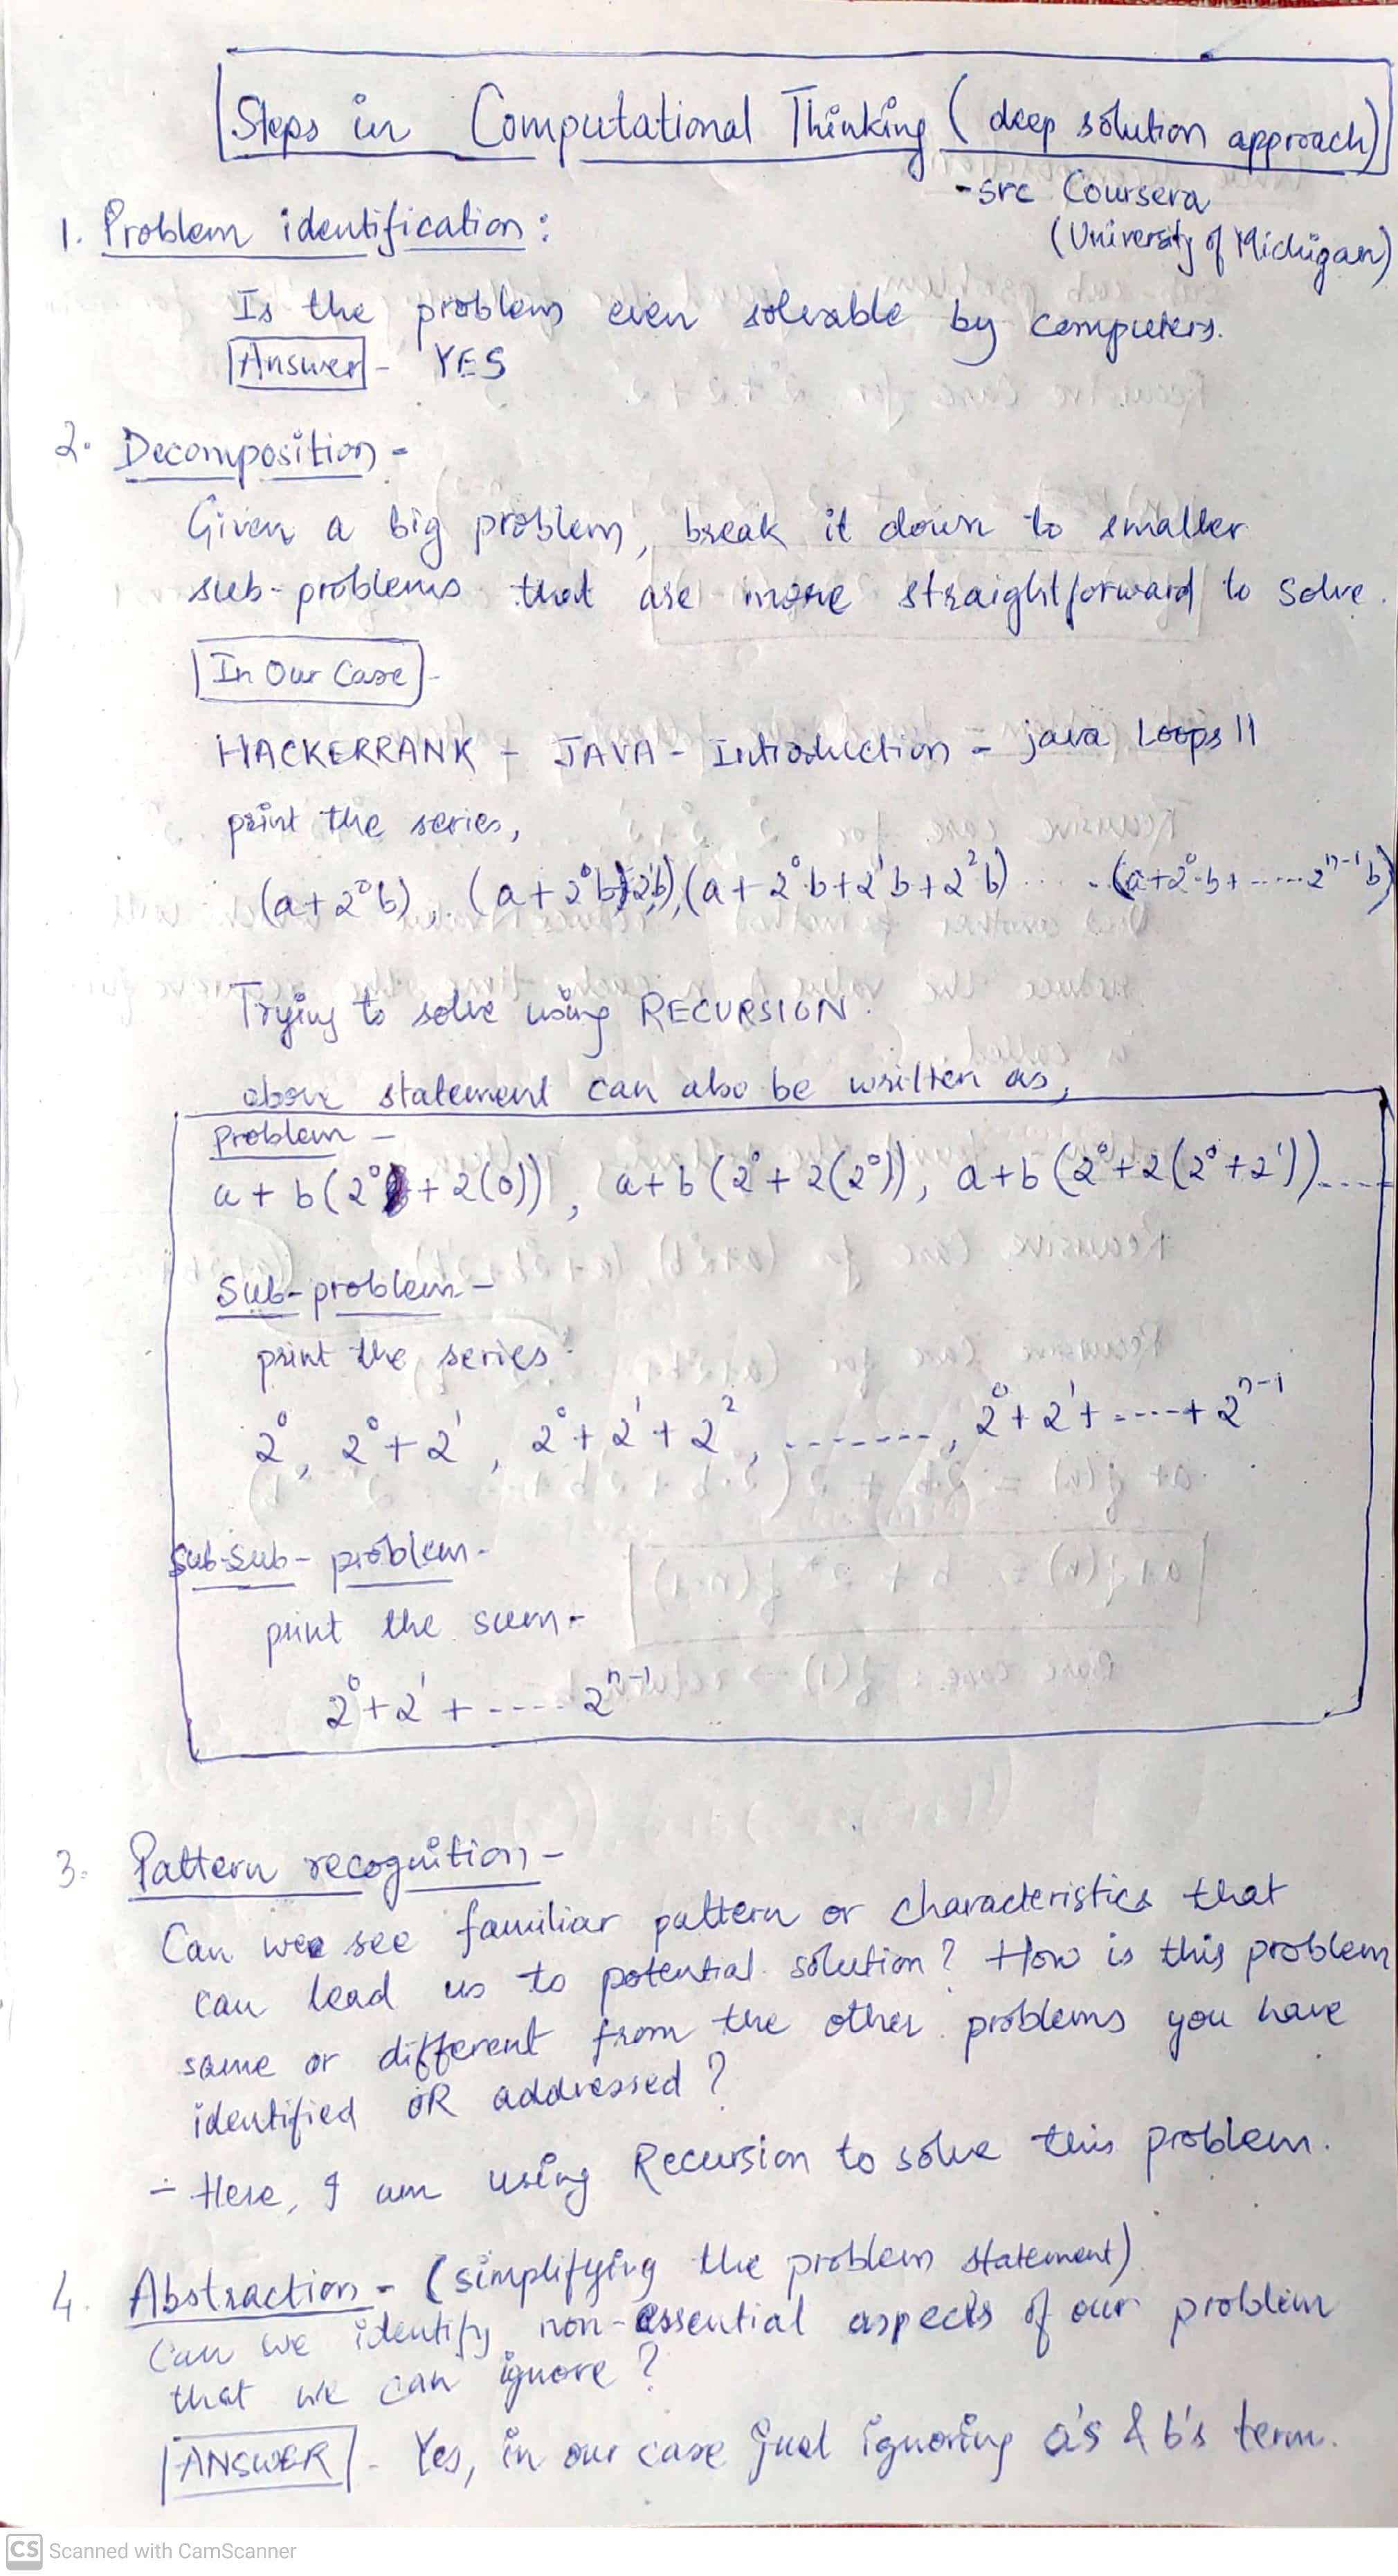 Steps in Computational Thinking (deep solution approach)
- src Coursera
(University of Michigan)
1. Problem identification :
Is the problem even solvable by computers.
Answer - YES
2. Decomposition -
Given a big problem, break it down to smaller
sub-problems that are more straightforward to solve.
In Our Case -
HACKERRANK - JAVA - Introduction - java Loops II
print the series,
(a+2⁰b), (a+2⁰b+2¹b), (a+2⁰b+2¹b+2²b) ..... (a+2⁰b+.....2ⁿ⁻¹b)
Trying to solve using RECURSION.
above statement can also be written as,
Problem -
a+b(2⁰+2(0)), a+b(2⁰+2(2⁰)), a+b(2⁰+2(2⁰+2¹))....
Sub-problem -
print the series :
2⁰, 2⁰+2¹, 2⁰+2¹+2², ......., 2⁰+2¹+....+2ⁿ⁻¹
Sub-Sub-problem -
print the sum -
2⁰+2¹+.....2ⁿ⁻¹
3. Pattern recognition -
Can we see familiar pattern or characteristics that
can lead us to potential solution? How is this problem
same or different from the other problems you have
identified OR addressed?
- Here, I am using Recursion to solve this problem.
4. Abstraction - (simplifying the problem statement)
Can we identify non-essential aspects of our problem
that we can ignore?
ANSWER - Yes, in our case just ignoring a's & b's term.
CS Scanned with CamScanner